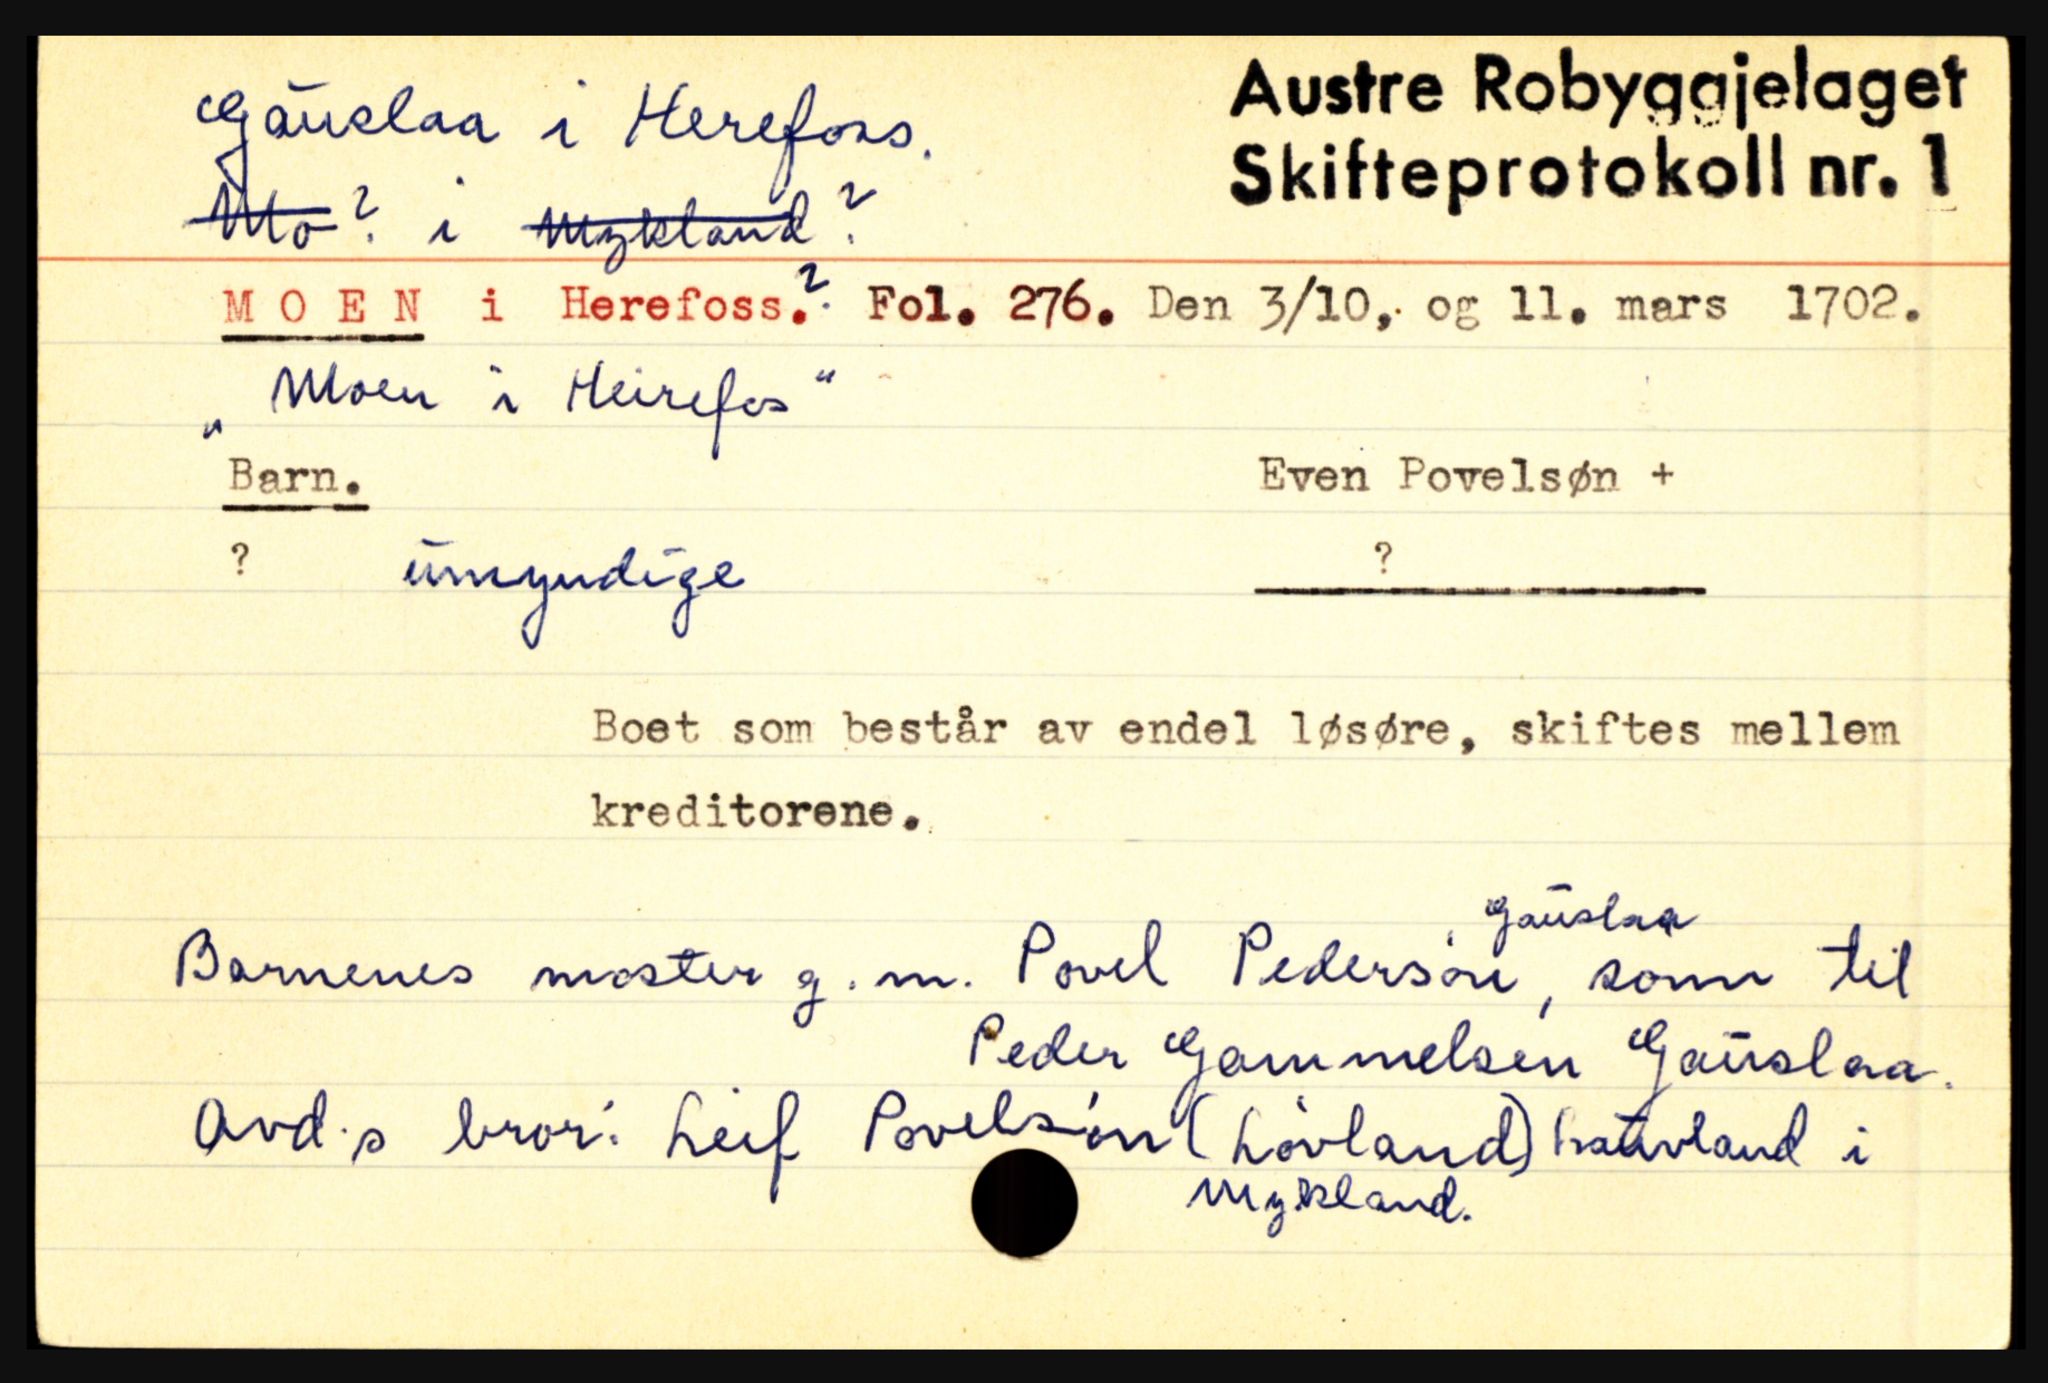 Gauslaa i Herefoss.
Austre Robyggjelaget
Skifteprotokoll nr. 1
Mo? i Mykland?
MOEN i Herefoss.? Fol. 276. Den 3/10, og 11. mars 1702.
„Moen i Heirefos"
Barn.
Even Povelsøn +
? umyndige
?
Boet som består av endel løsøre, skiftes mellem
kreditorene.
Gauslaa
Barnenes moster g.m. Povel Pedersøn, sønn til
Peder Gammelsen Gauslaa.
Avd.s bror: Leif Povelsøn (Løvland) i
Mykland.